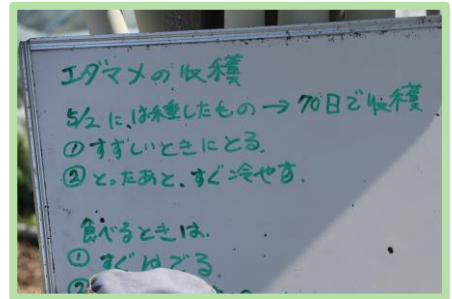 エダマメの収穫
5/2に、は種したもの→70日で収穫
①すずしいときにとる.
②とったあと、すぐ冷やす.
食べるときは.
①すぐゆでる.
②